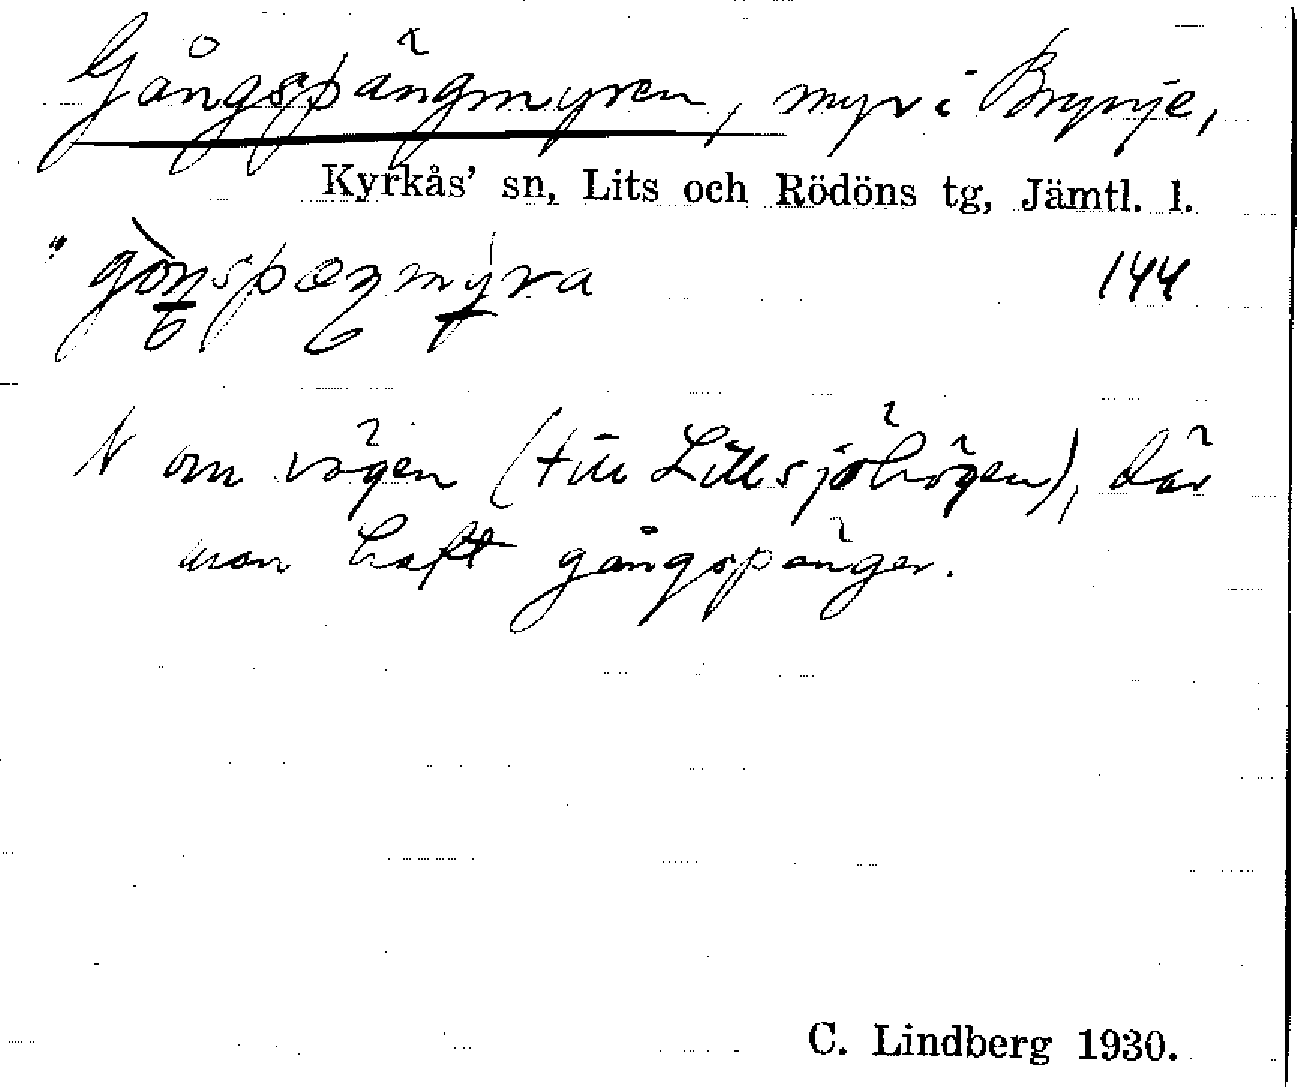 Gångspängmyren, myr i Brynje,
Kyrkås' sn, Lits och Rödöns tg, Jämtl. l.
144
N om vägen (till Lillsjöhögen), där
man haft gångspänger.
C. Lindberg 1930.